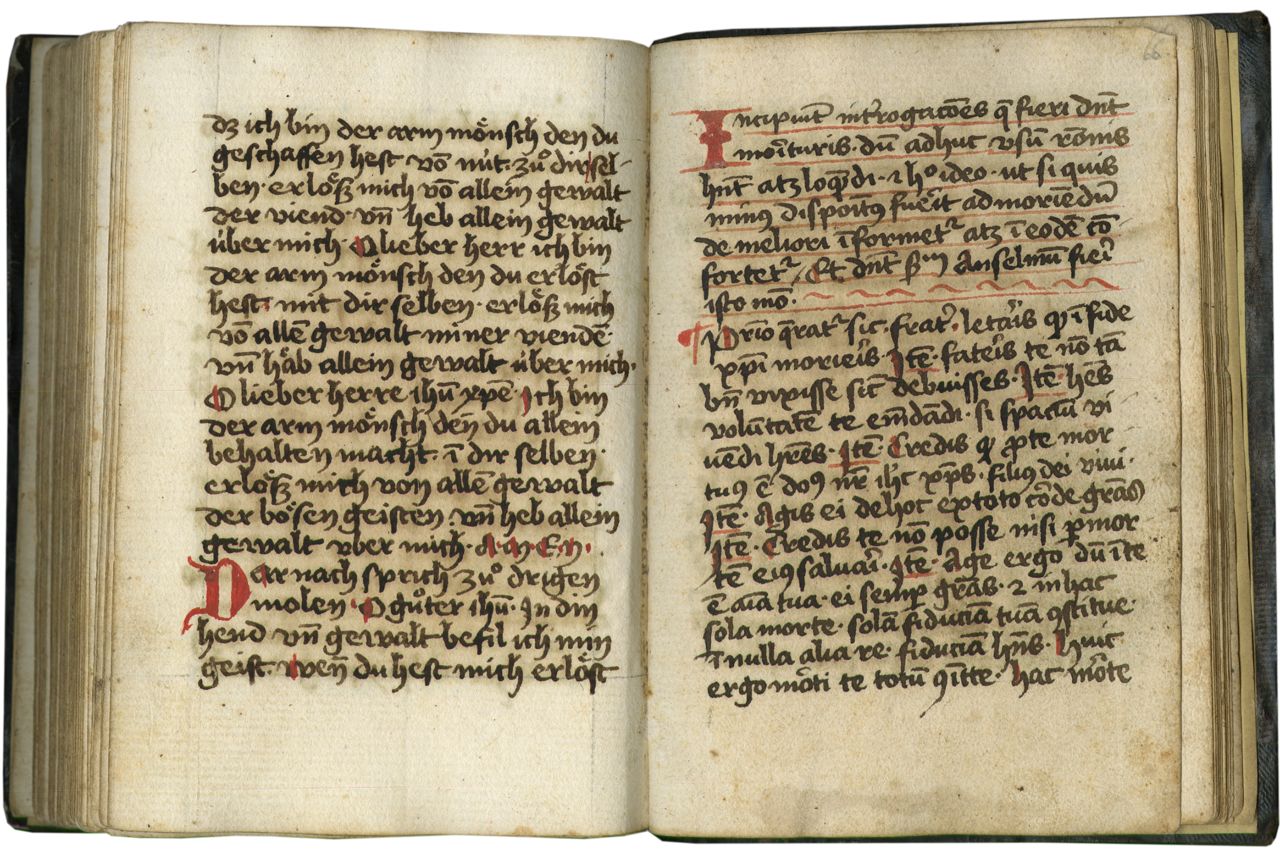 dz ich bin der arm mönsch den du
geschaffen hest vō nüt. zů dir sel-
ben. erlöß mich vō allein gewalt
der viend. vn̄ heb allein gewalt
über mich. O lieber herr ich bin
der arm mönsch den du erlöst
hest. mit dir selben. erlöß mich
vō allē gewalt miner viendē.
vn̄ häb allein gewalt über mich.
O lieber herre ihū xpē. Ich bin
der arm mönsch den̄ du allein
behalten macht. ī dir selben.
erlöß mich von allē gewalt
der bösen geisten. vn̄ heb allein
gewalt vber mich. A.m.E.n.
Dar nach sprich zů drigen
molen. O gůter ihū. In din
hend vn̄ gewalt befil ich min
geist. wen̄ du hest mich erlöst
66
Incipiūt interrogacōes q̄ fieri dn̄t
morituris. dū adhuc vsū rōnis
hn̄t atz loquēdi. ⁊ hº ideo. ut si quis
minus disposit9 fuerit ad moriēdū
de meliori īformetʳ atz ī eodē cō-
fortetʳ. Et dn̄t Anselmum fieri
isto mō.
¶ Prīo q̄ratʳ sic. frater. letaris qꝫ ī fide
xp̄i morieris. Itē. fateris te nō tā
bn̄ vixisse sic̄ debuisses. Itē hn̄s
volūtatē te emēdādi. si spaciū vi
uēdi hēres. Itē. Credis qꝫ ꝓ te mor
tu9 ē do9 nr̄ ihc xp̄s. filius dei viui.
Itē. Agis ei de hoc ex toto corde gr̄as
Itē. Credis te nō posse nisi ꝑ mor
tē ei9 saluari. Itē. Age ergo dū ī te
ē aīa tua. ei semꝑ gr̄as. ⁊ in hac
sola morte. solā fiduciā tuā ꝯstitue.
ī nulla alia re. fiduciā hn̄s. huic
ergo morti te totū ꝯmitte. hac morte